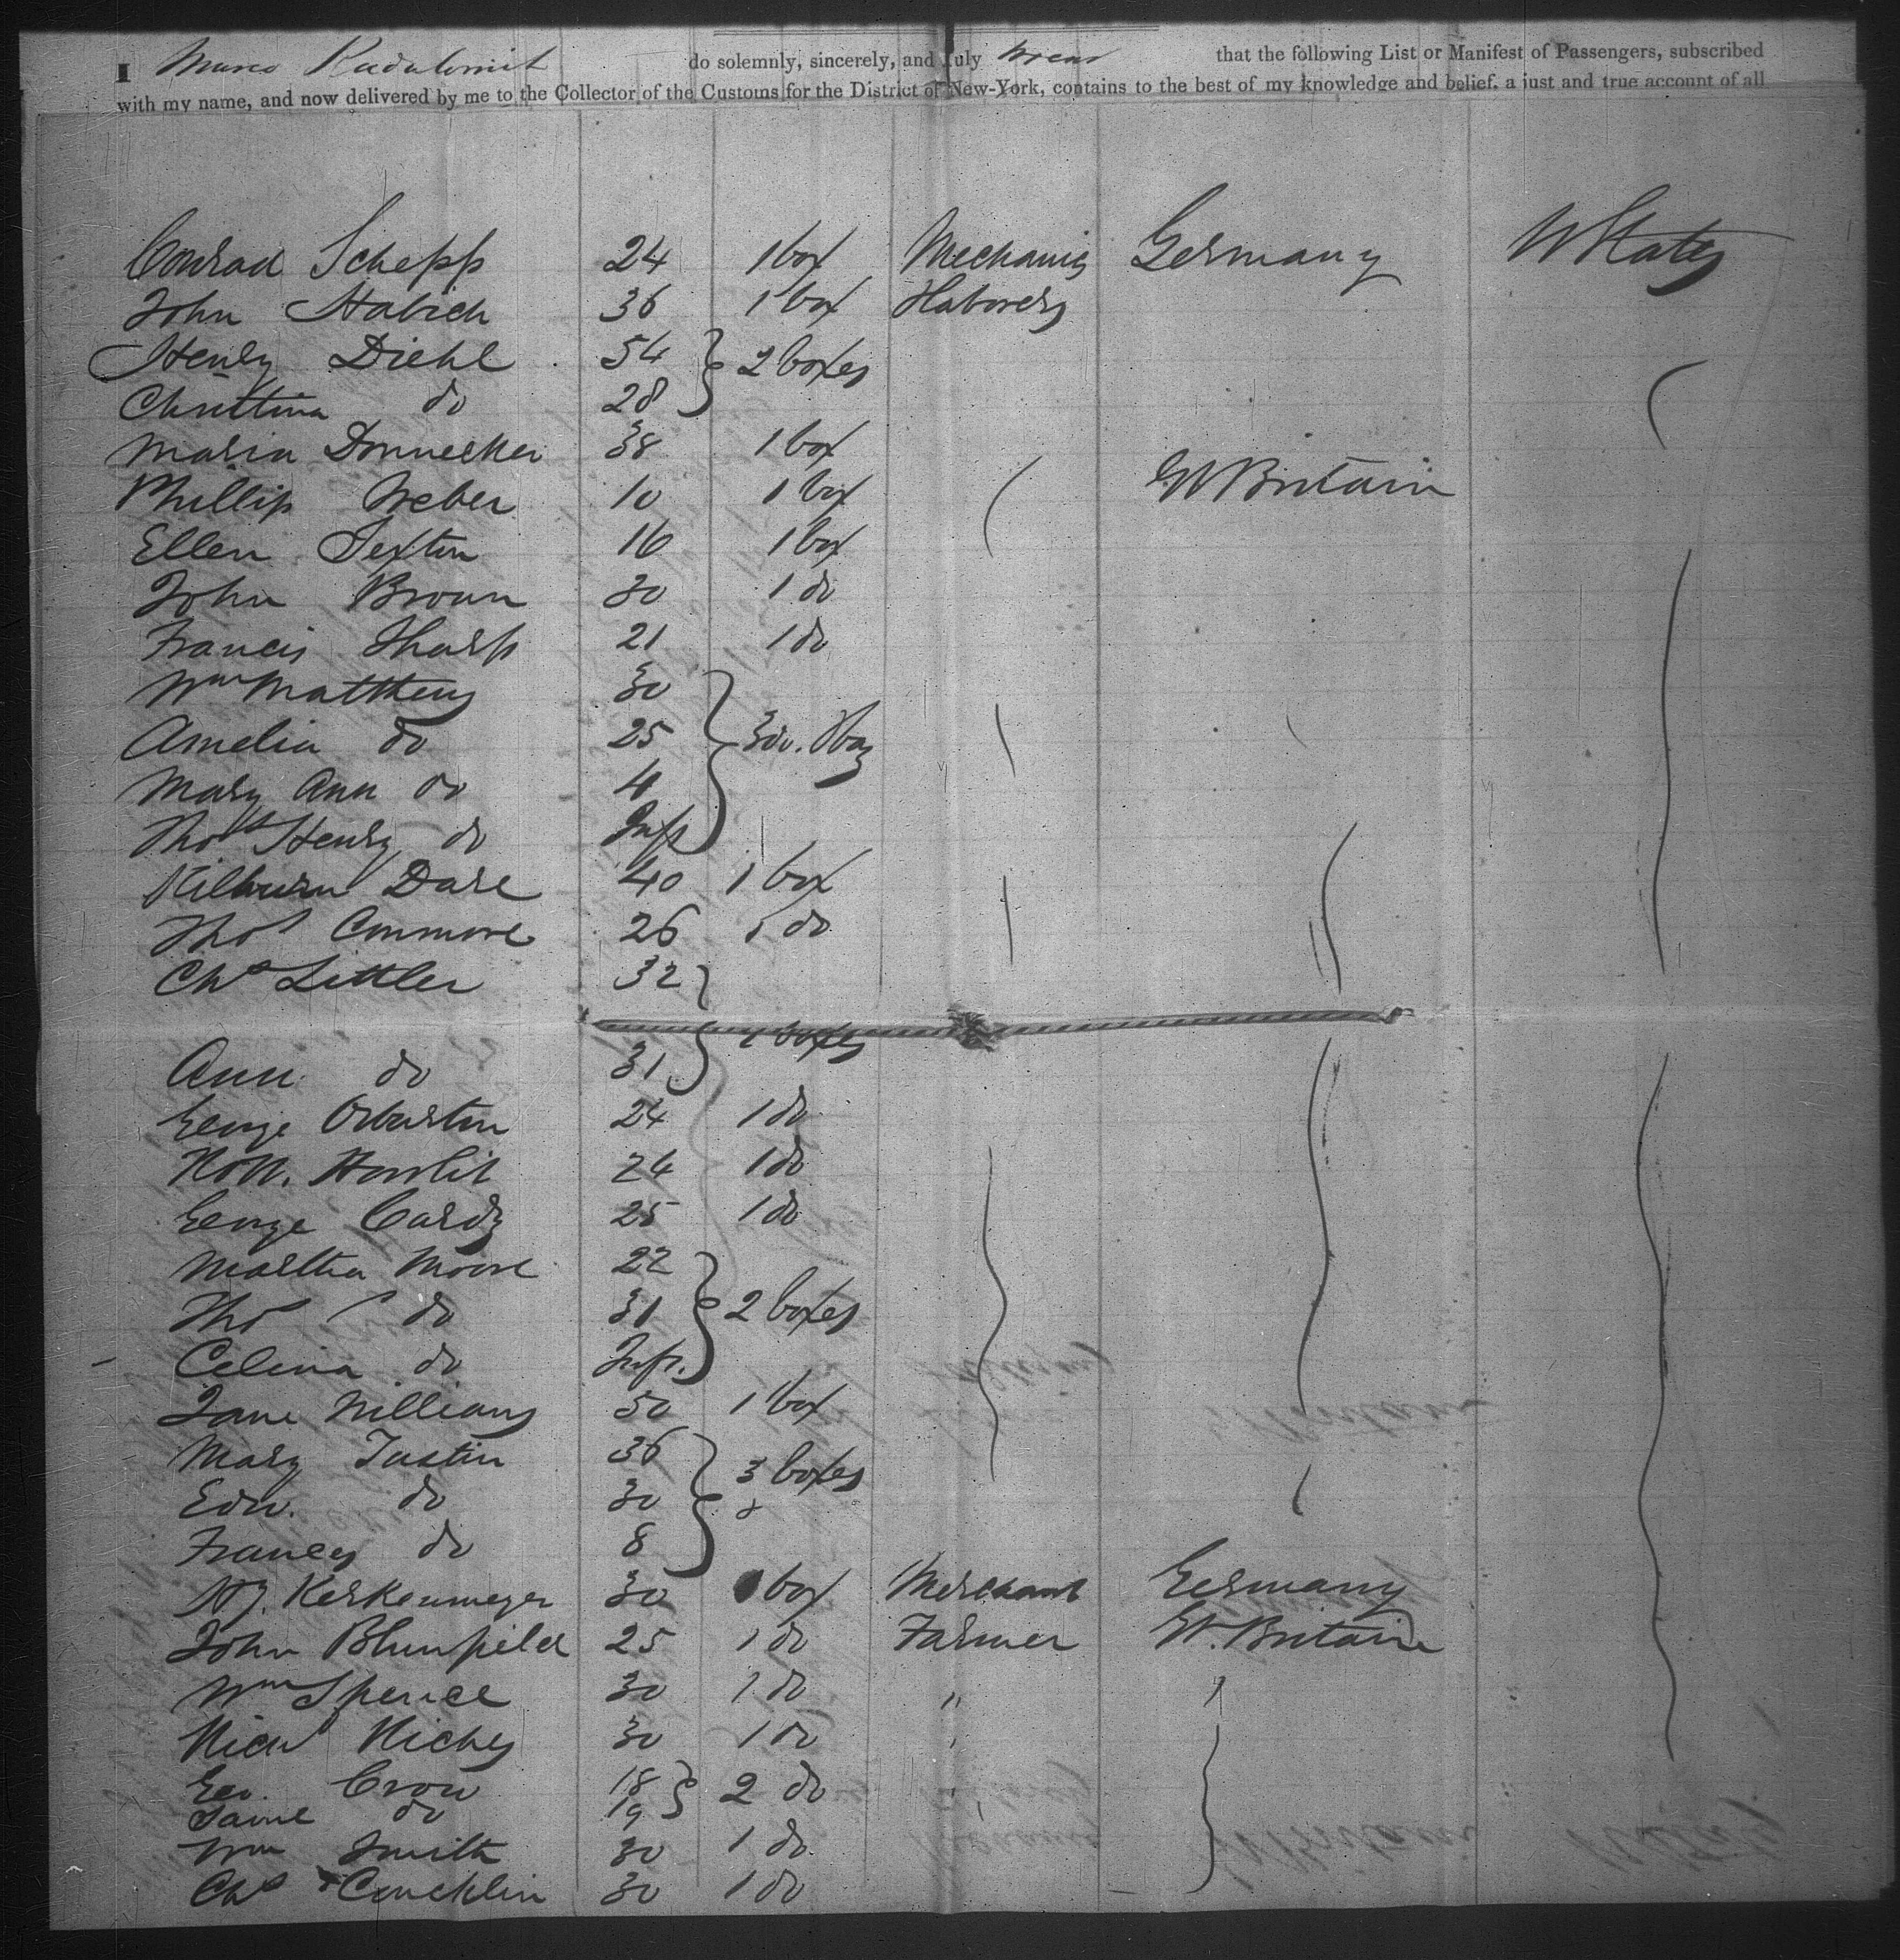 I Marco do solemnly, sincerely, and July swear that the following List or Manifest of Passengers, subscribed
with my name, and now delivered by me to the Collector of the Customs for the District of New-York, contains to the best of my knowledge and belief, a just and true account of all
Conrad Schepp 24 1 box Mechanic Germany U States
John Habich 36 1 box
Henry Diehl 54 2 boxes
Christina do 28
Maria Donnecker 38 1 box
Phillip Weber 10 1 box Gt Britain
Ellen Sexton 16 1 box
John Brown 30 1 do
Francis Sharp 21 1 do
Wm Matthews 30
Amelia do 25 3 do.
Mary Ann do 4
Thos Henry do Inft
Kilburn Dare 40 1 box
Thos Conmore 26 1 do
Chs Littler 32
Ann do 31 boxes
George 24 1 do
24 1 do
George Cardy 25 1 do
Martha Moore 22
Thos do 31 2 boxes
Celina do Inft.
Jane Williams 50 1 box
Mary Tustin 36 3 boxes
Edw. do 30
Frances do 8
Kerkenmeyer 30 1 box Merchant Germany
John Blumfield 25 1 do Farmer Gt. Britain
Wm Spence 30 1 do "
Hickey 30 1 do "
Geo. Crow 18 2 do "
Jane do 19 "
Wm Smith 30 1 do
Chs Concklin 30 1 do